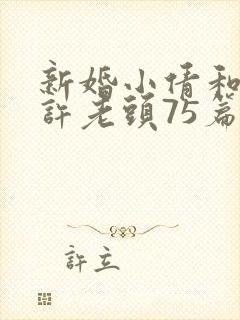 新婚小倩和
許老頭75篇
許立